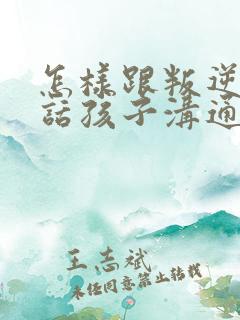 怎樣跟叛逆
話孩子溝通
王志斌
未经同意禁止转载